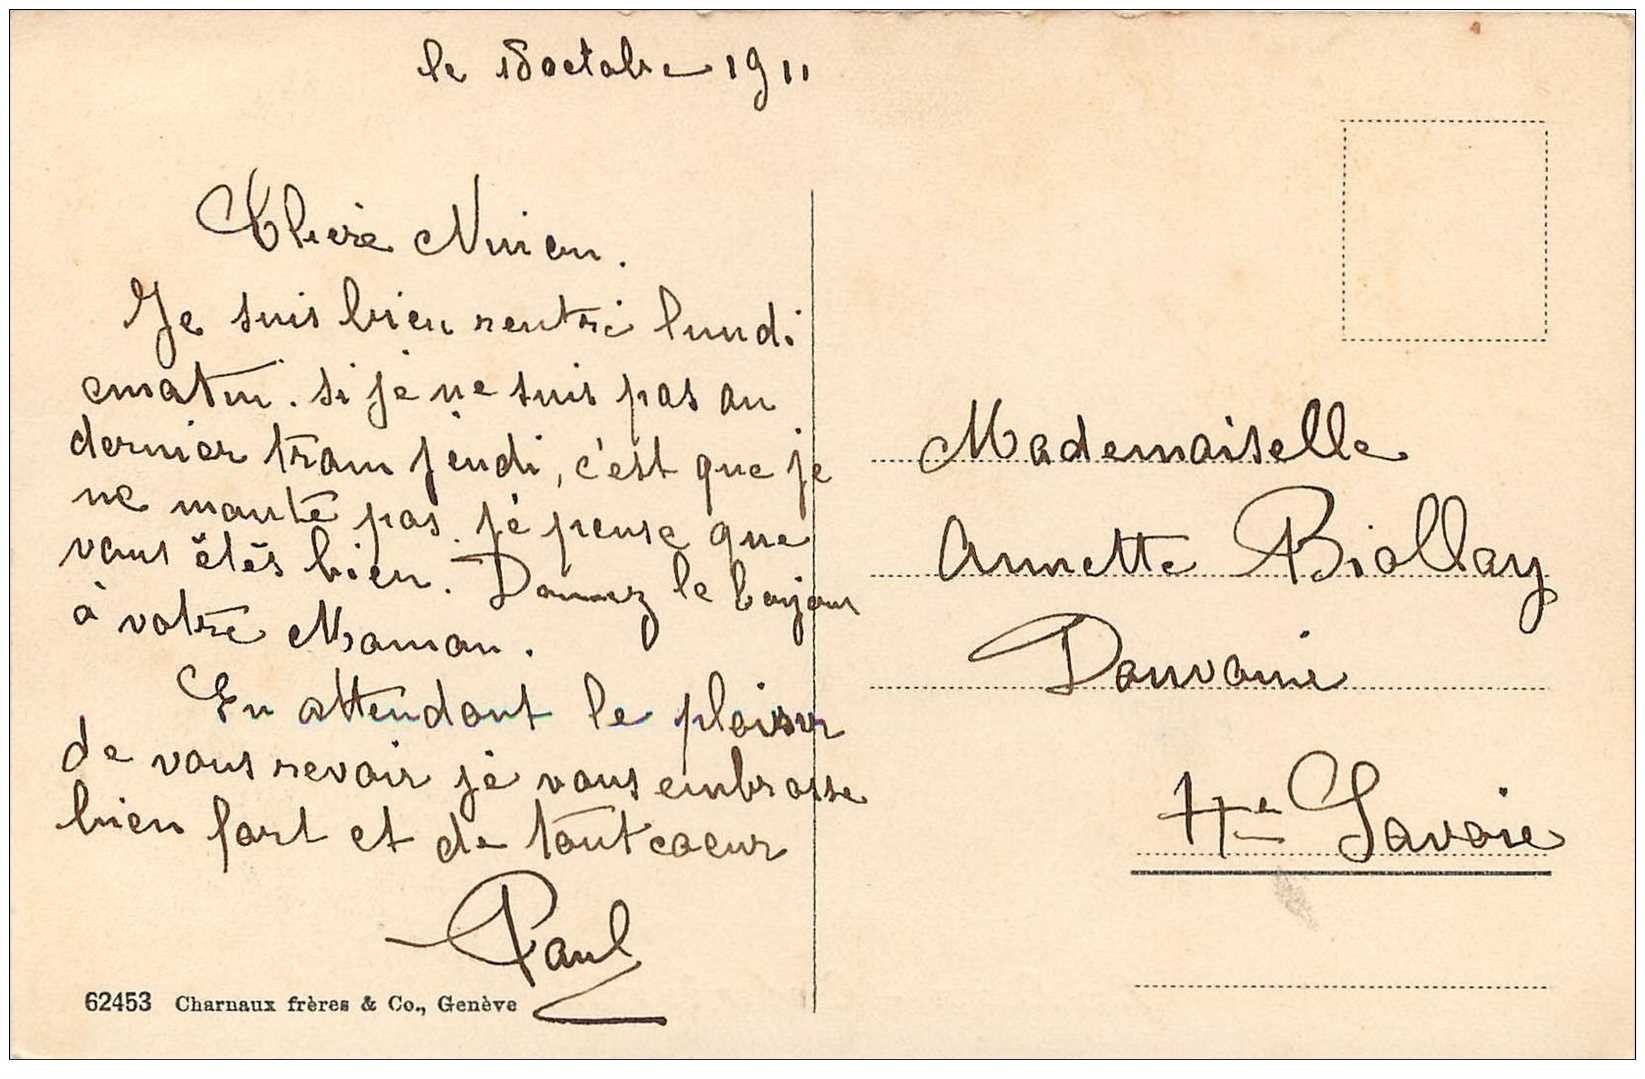 le 18 octobre 1911
Chère Ninien.
Je suis bien rentré lundi
matin. si je ne suis pas au
dernier tram jeudi, c'est que je
ne monte pas. je pense que
vous étés bien. Donnez le bonjour
à votre Maman.
En attendant le plaisir
de vous revoir je vous embrasse
bien fort et de tout coeur
Paul
62453 Charnaux frères & Co., Genève
Mademoiselle
Annette Biollay
Douvaine
Hte Savoie